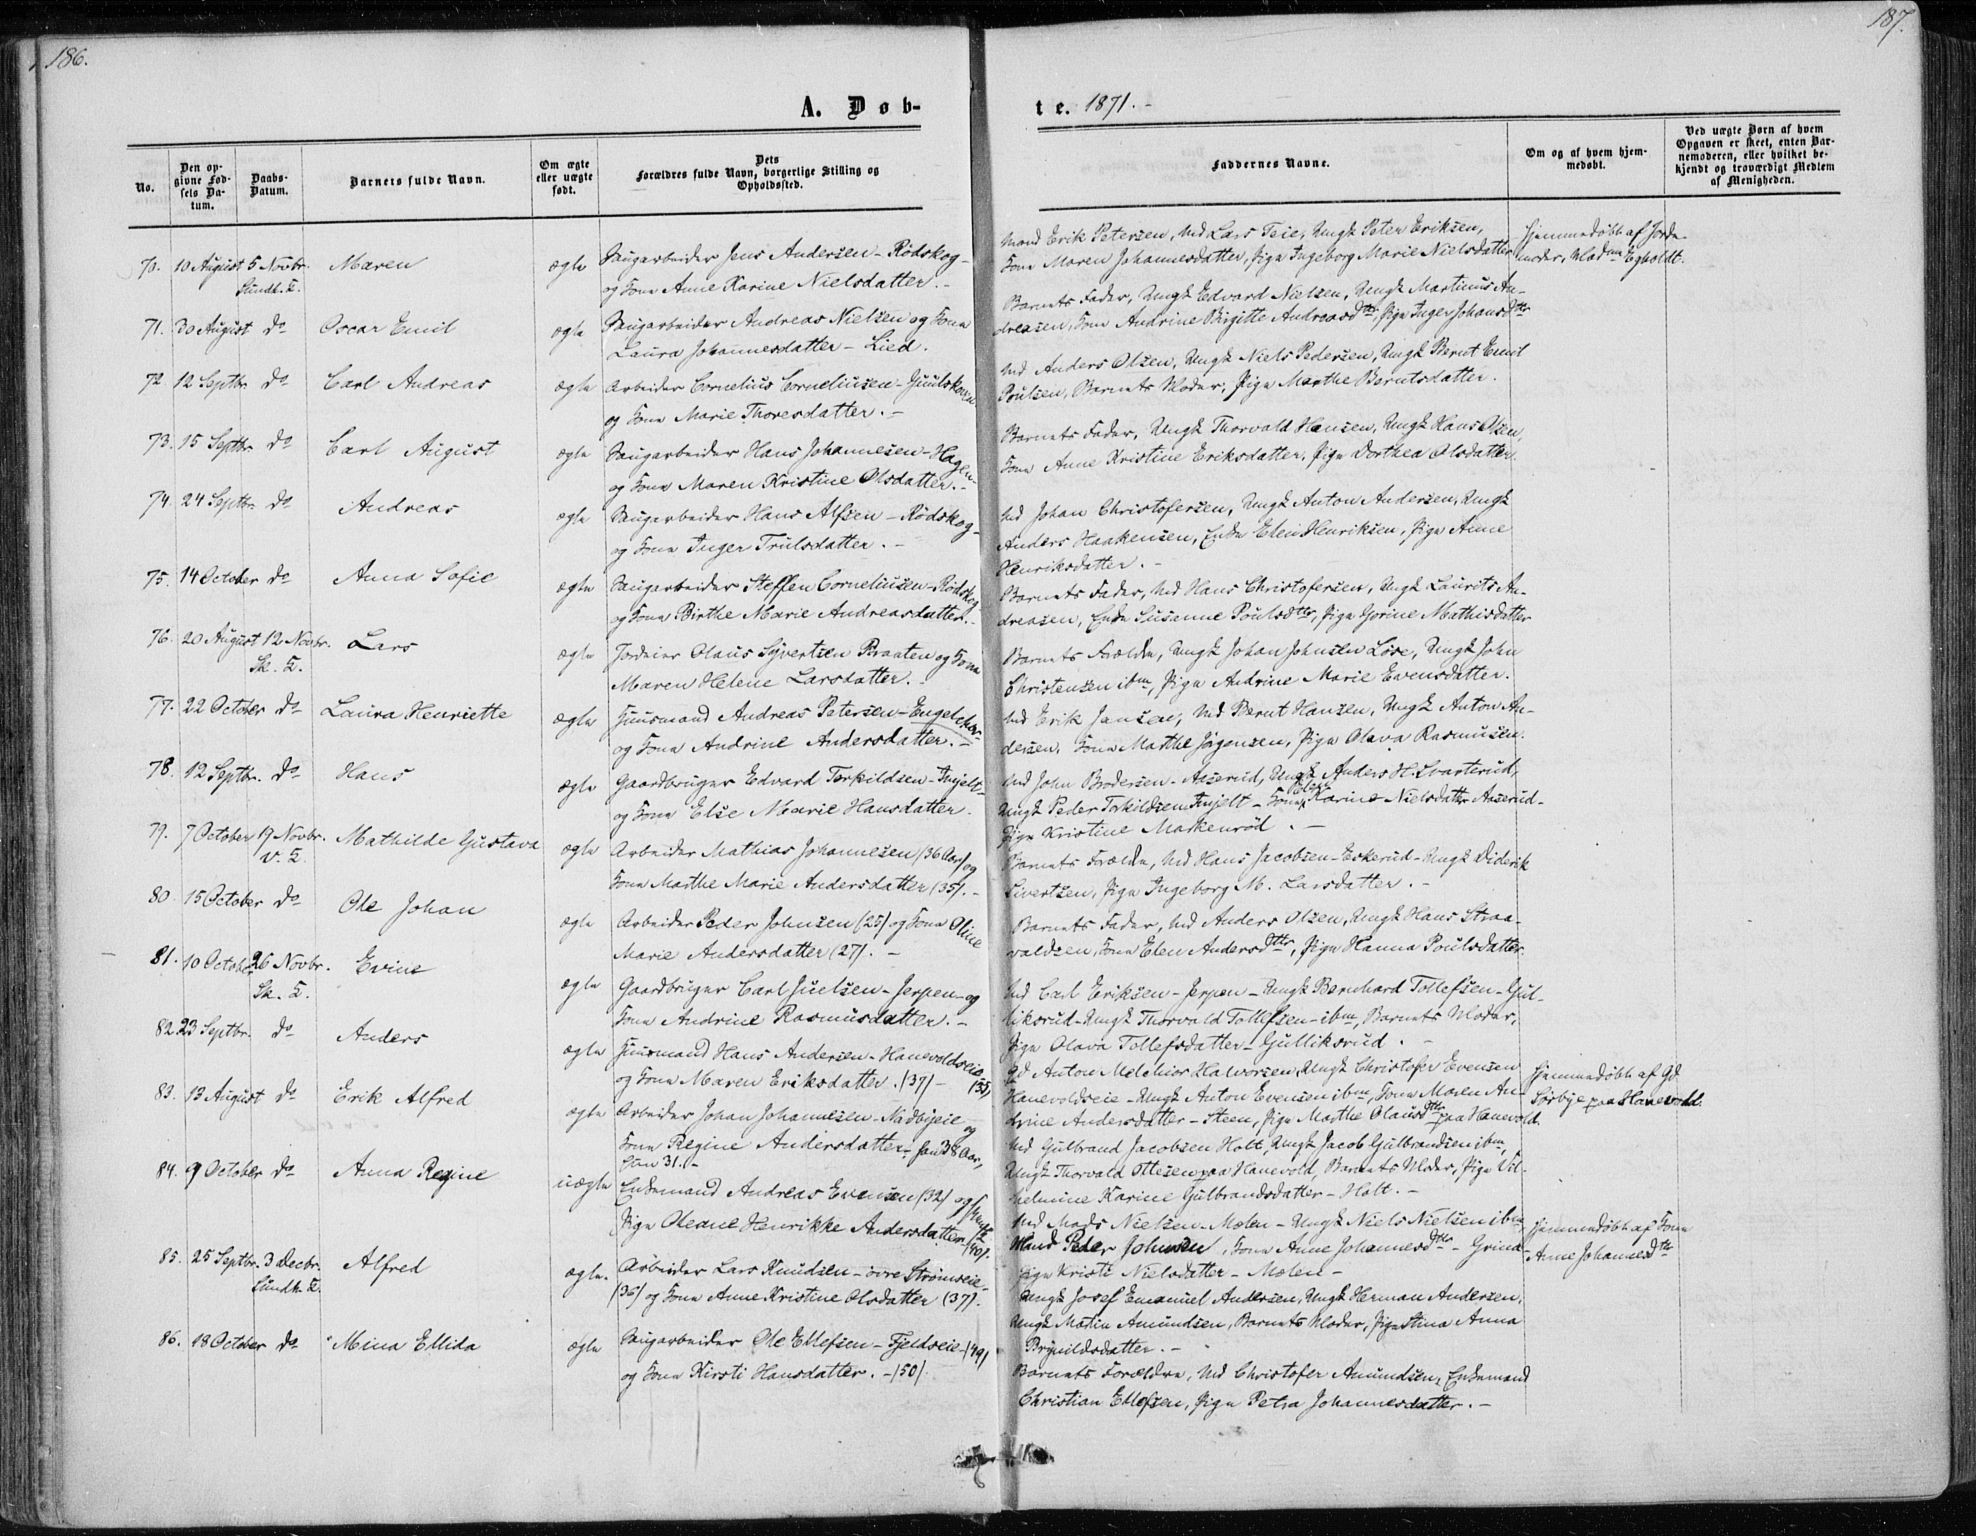 186.
187.
A. Døb-
te. 1871.-
No.
Den op-
givne Fød-
sels Da-
tum.
Daabs-
Datum.
Barnets fulde Navn.
Om ægte
eller uægte
født.
Dets
Forældres fulde Navn, borgerlige Stilling og
Opholdssted.
Faddernes Navne.
Om og af hvem hjem-
medøbt.
Ved uægte Børn af hvem
Opgaven er skeet, enten Bar-
nemoderen, eller hvilket be-
kjendt og troværdigt Medlem
af Menigheden.
70. 10 August 5 Novbr. Maren ægte Saugarbeider Jens Andersen - Rødskog -
Sundh. K. og Kone Anne Karine Nielsdatter. -
Mand Erik Petersen, Md Lars Teie, Ungk Peter Eriksen,
Kone Maren Johannesdatter, Pige Ingeborg Marie Nielsdatter
Hjemmedøbt af Jorde-
moder, Mad Egholdt.
71. 30 August do Oscar Emil ægte Saugarbeider Andreas Nielsen og Kone
Laura Johannesdatter - Lied.
Barnets Fader, Ungk Edvard Nielsen, Ungk Martinus An-
dreasen, Kone Andrine Birgitte Andreasdtr, Pige Inger Johansdtr
72. 12 Septbr. do Carl Andreas ægte Arbeider Cornelius Corneliusen - Juulskoven
og Kone Marie Thoresdatter. -
Md Anders Olsen, Ungk Niels Pedersen, Ungk Bernt Emil
Poulsen, Barnets Moder, Pige Marthe Berntsdatter.
73. 15 Septbr. do Carl August ægte Saugarbeider Hans Johannesen - Hagen -
og Kone Maren Kristine Olsdatter. -
Barnets Fader, Ungk Thorvald Hansen, Ungk Hans Olsen,
Kone Anne Kristine Eriksdatter, Pige Dorthea Olsdatter.
74. 24 Septbr. do Andreas ægte Saugarbeider Hans Alfsen - Rødskog -
og Kone Inger Trulsdatter. -
Md Johan Christofersen, Ungk Anton Andersen, Ungk
Anders Haakensen, Enke Elen Henriksen, Pige Anne
Henriksdatter. -
75. 14 October do Anna Sofie ægte Saugarbeider Steffen Corneliusen - Rødskog
og Kone Birthe Marie Andreasdatter. -
Barnets Fader, Md Hans Christofersen, Ungk Laurits An-
dreasen, Enke Susanne Poulsdtr, Pige Gorine Mathisdatter
76. 20 August 12 Novbr. Lars ægte Jordeier Olaus Syvertsen Braaten og Kone
Sk. K. Maren Helene Larsdatter. -
Barnets Forældre, Ungk Johan Johnsen Löve, Ungk John
Christensen ibm, Pige Andrine Marie Evensdatter.
77. 22 October do Laura Henriette ægte Huusmand Andreas Petersen - Engelskov -
og Kone Andrine Andersdatter. -
Md Erik Jansen, Md Bernt Hansen, Ungk Anton An-
dersen, Kone Marthe Jörgensen, Pige Olava Rasmusen.
78. 12 Septbr. do Hans ægte Gaardbruger Edvard Torkildsen - Injelt -
og Kone Else Marie Hansdatter.
Md John Brodersen - Aaserud, Ungk Anders H. Svarterud,
Ungk Peder Torkildsen Injelt - Kone Karine Nielsdatter Aaserud -
Pige Kristine Markenrød. -
79. 7 October 19 Novbr. Mathilde Gustava ægte Arbeider Mathias Johannesen (36 Aar) og
V. K. Kone Marthe Marie Andersdatter (35). -
Barnets Forældre, Md Hans Jacobsen - Eskerud - Ungk Diderik
Sivertsen, Pige Ingeborg M. Larsdatter. -
80. 15 October do Ole Johan ægte Arbeider Peder Johnsen (25) og Kone Oline
Marie Andersdatter (27). -
Barnets Fader, Md Anders Olsen, Ungk Hans Straa-
valdsen, Kone Elen Andersdtr, Pige Hanna Poulsdatter.
81. 10 October 26 Novbr. Evine ægte Gaardbruger Carl Juelsen - Jerpen - og
Sk. K. Kone Andrine Rasmusdatter. -
Md Carl Eriksen - Jerpen - Ungk Bernhard Tollefsen - Gul-
liksrud - Ungk Thorvald Tollefsen - ibm, Barnets Moder,
Pige Olava Tollefsdatter - Gulliksrud. -
82. 23 Septbr. do Anders ægte Huusmand Hans Andersen - Hanevoldseie (35)
og Kone Maren Eriksdatter. (37) -
Gd Anton Melchior Halvorsen, Ungk Christofer Evensen
Hanevoldseie - Ungk Anton Evensen ibm, Kone Maren An-
drine Andersdatter - Steen, Pige Marthe Olausdtr paa Hanevold.
Hjemmedøbt af Gd
Sørbye paa Hanevold.
83. 13 August do Erik Alfred ægte Arbeider Johan Johannesen - Nadbyeie og
Kone Regine Andersdatter - han 38 Aar,
hun 31. -
Md Gulbrand Jacobsen Holt, Ungk Jacob Gulbrandsen ibm,
Ungk Thorvald Ottesen paa Hanevold, Barnets Moder, Pige Vil-
helmine Karine Gulbrandsdatter - Holt. -
84. 9 October do Anna Regine uægte Enkemand Andreas Evensen (32) og
Pige Oleane Henrikke Andersdatter (40).
Md Mads Nielsen - Molen - Ungk Niels Nielsen ibm
Mand Peder Johnsen, Kone Anne Johannesdtr - Grind -
Pige Kristi Nielsdatter - Molen -
Hjemmedøbt af Kone
Anne Johannesdtr
85. 25 Septbr. 3 Decbr. Alfred ægte. Arbeider Lars Knudsen - övre Strömseie -
Sundh. K. (36) og Kone Anne Kristine Olsdatter (37).
Ungk Josef Emanuel Andersen, Ungk Herman Andersen,
Ungk Martin Amundsen, Barnets Moder, Pige Stina Anna
Brynildsdatter. -
86. 18 October do Mina Ellida ægte Saugarbeider Ole Ellefsen - Fjeldseie - (49)
og Kone Kirsti Hansdatter. - (50).
Barnets Forældre, Md Christofer Amundsen, Enkemand
Christian Ellefsen, Pige Petra Johannesdatter. -